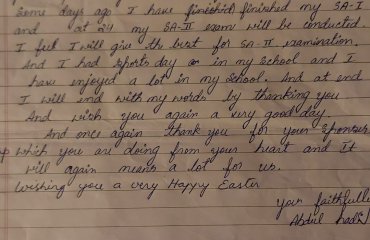 Some days ago I have finishid finished my SA-I
and at 24 my SA-II exam will be conducted
I feel I will give the best for SA-II examination.
And I had sports day in my School and I
have enjoyed a lot in my School. And at end
I will end with my words by thanking you
And wish you again a very good day.
And once again thank you for your Sponser
which you are doing from your heart and It
will again means a lot for us.
Wishing you a very Happy Easter
your faithfully
Abdul hadi